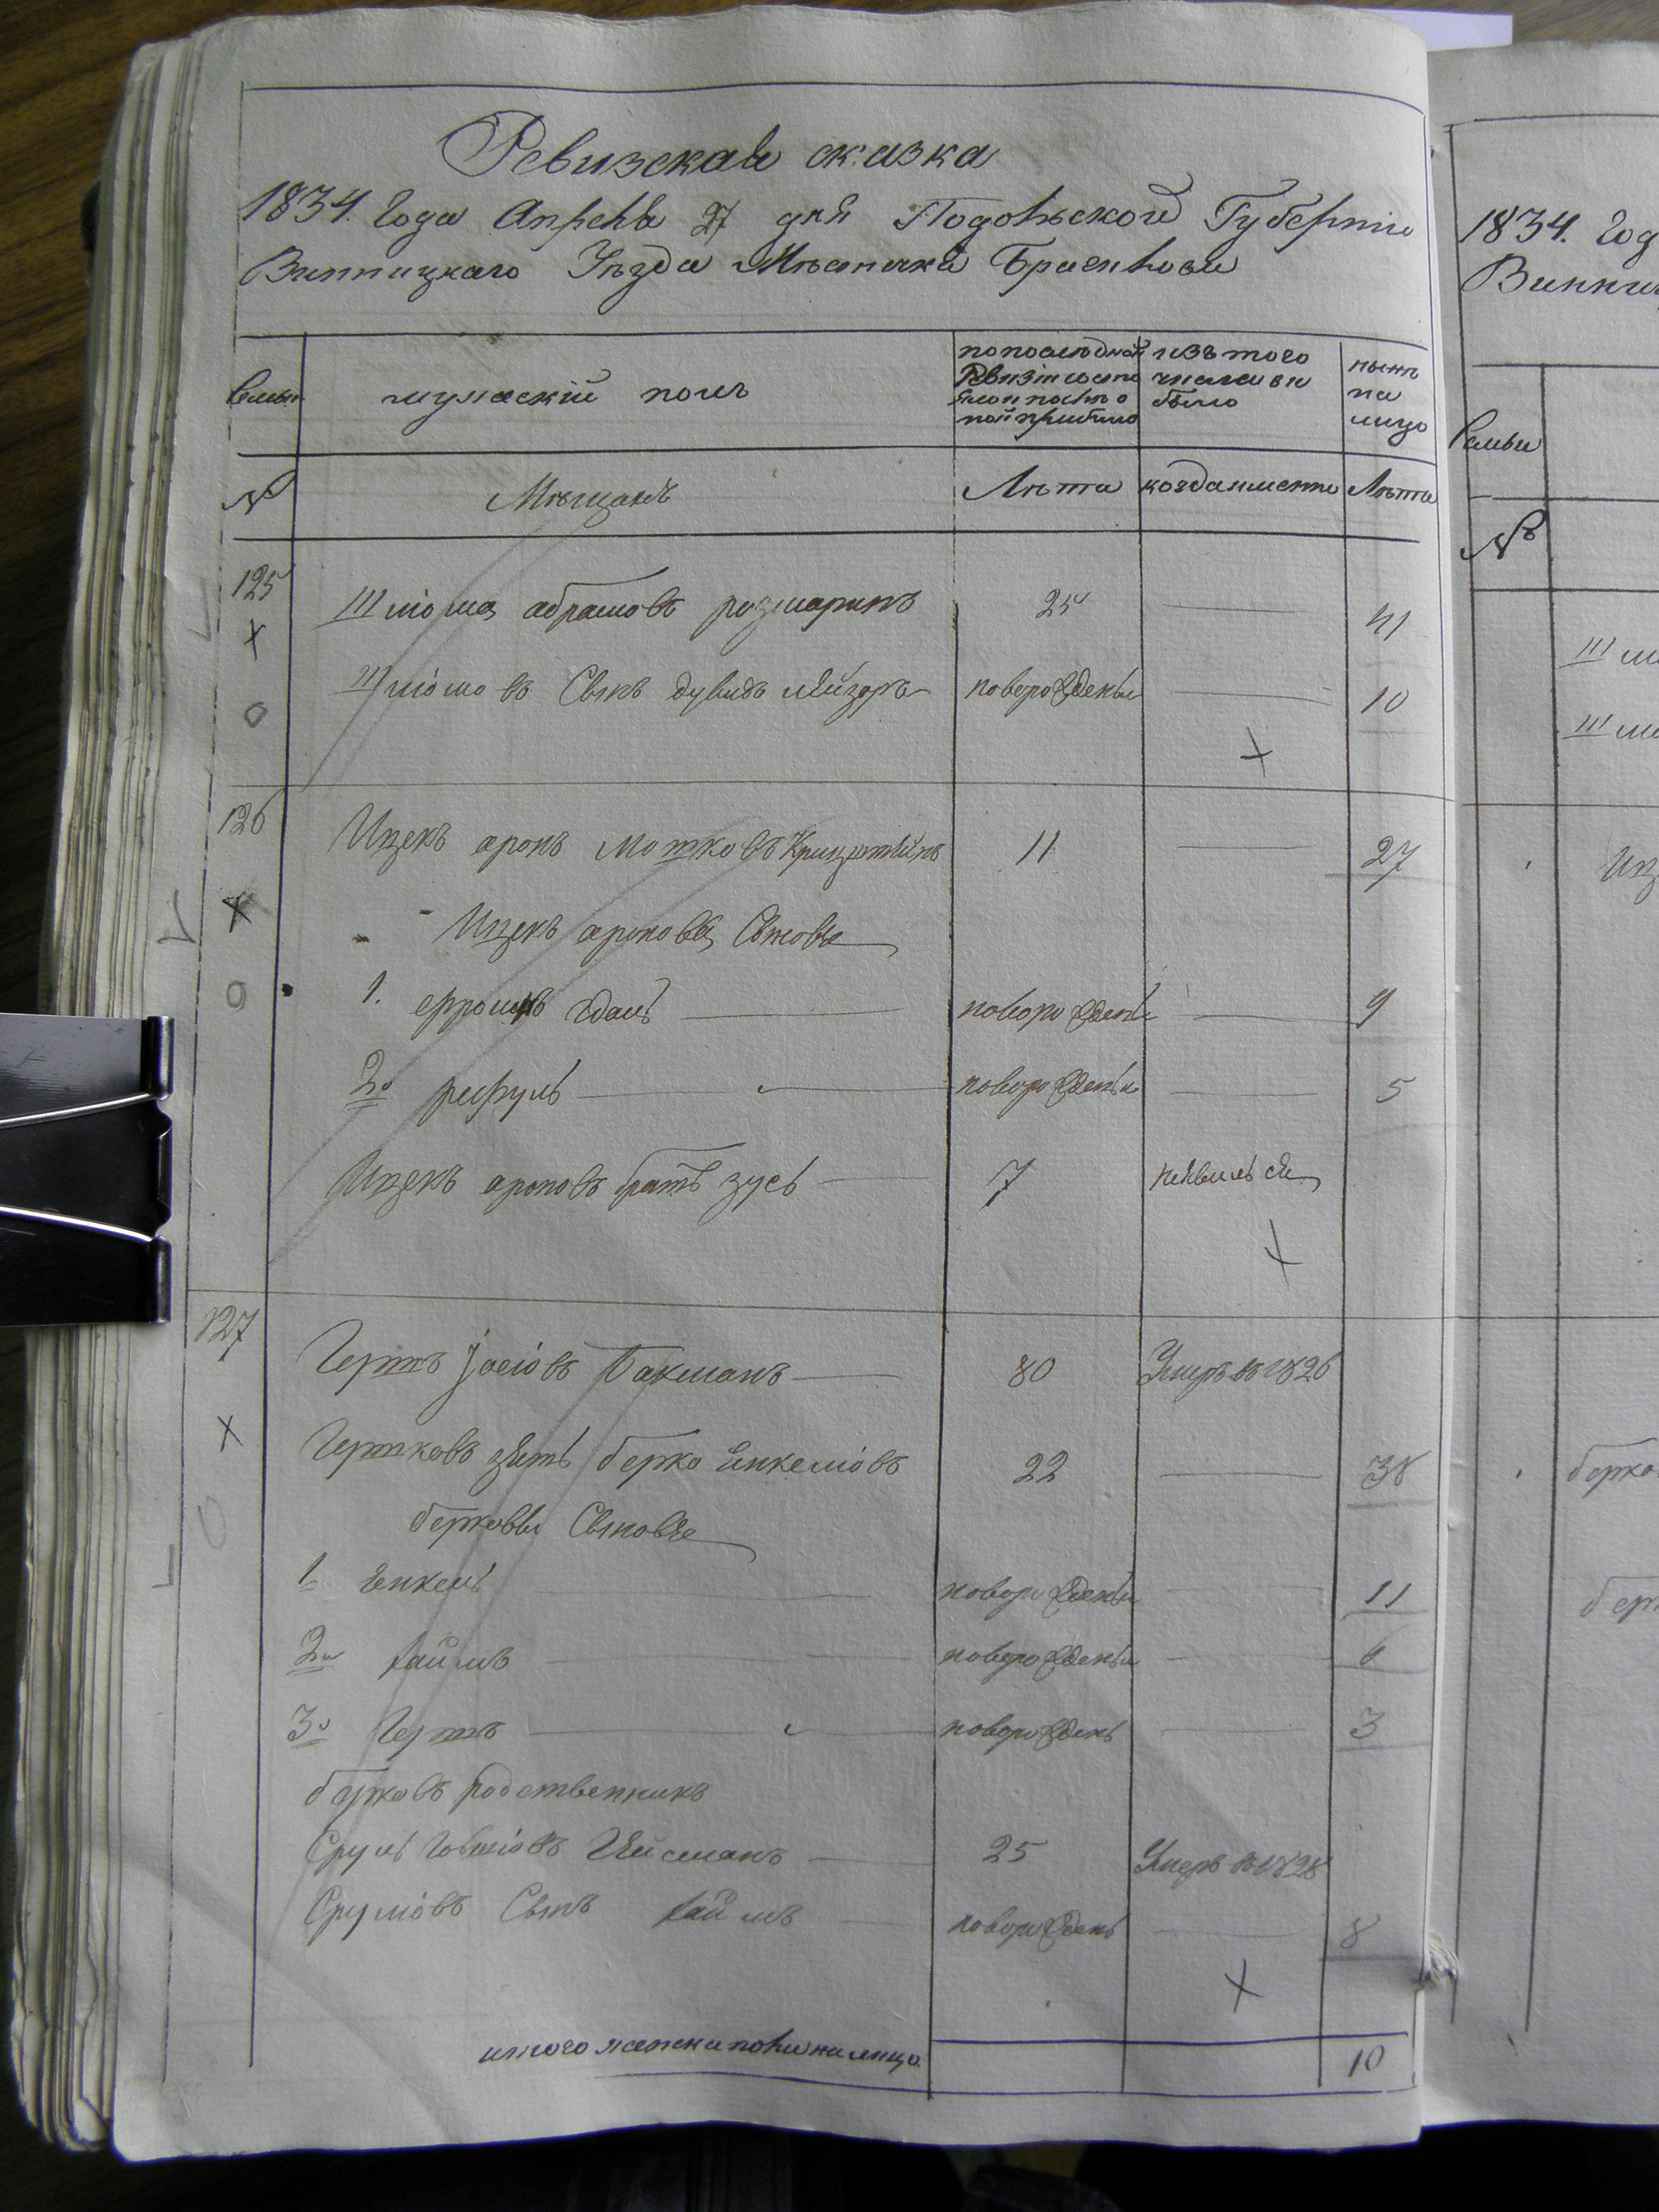 Ревизская сказка
1834. Года Апреля 27 дня Подольской Губерніи
Винницкаго Уезда Местечка Браилова
Семьи
мужескій полъ
по последней Ревизіи состояло и после оной прибыло
изъ того числа выбыло
ныне на лицо
№
Мещанъ
Лета
когда именно
Лета
125
Шліома абрамовъ розмаринъ
25
41
Шліомовъ Сынъ дувидъ лейзоръ
новорожденъ
10
126
Ицекъ аронъ Мошковъ
11
27
Ицекъ ароновы Сыновья
1.
новорожденъ
9
2й рефулъ
новорожденъ
5
Ицекъ ароновъ братъ зусь
7
неявился
127
Гершъ Іосіовъ Бакманъ
80
Умеръ въ 1826
Гершковъ зять берко Янкеліовъ
22
38
берковы Сыновья
1 Янкель
новорожденъ
11
2й хаимъ
новорожденъ
6
3й Гершъ
новорожденъ
3
берковъ родственникъ
Сруль
25
Умеръ въ 1828
Сруліовъ Сынъ хаимъ
новорожденъ
8
итого мужеска пола на лицо
10
1834. Год
Винни
Семьи
№
Шлі
Шлі
Иц
берко
бер